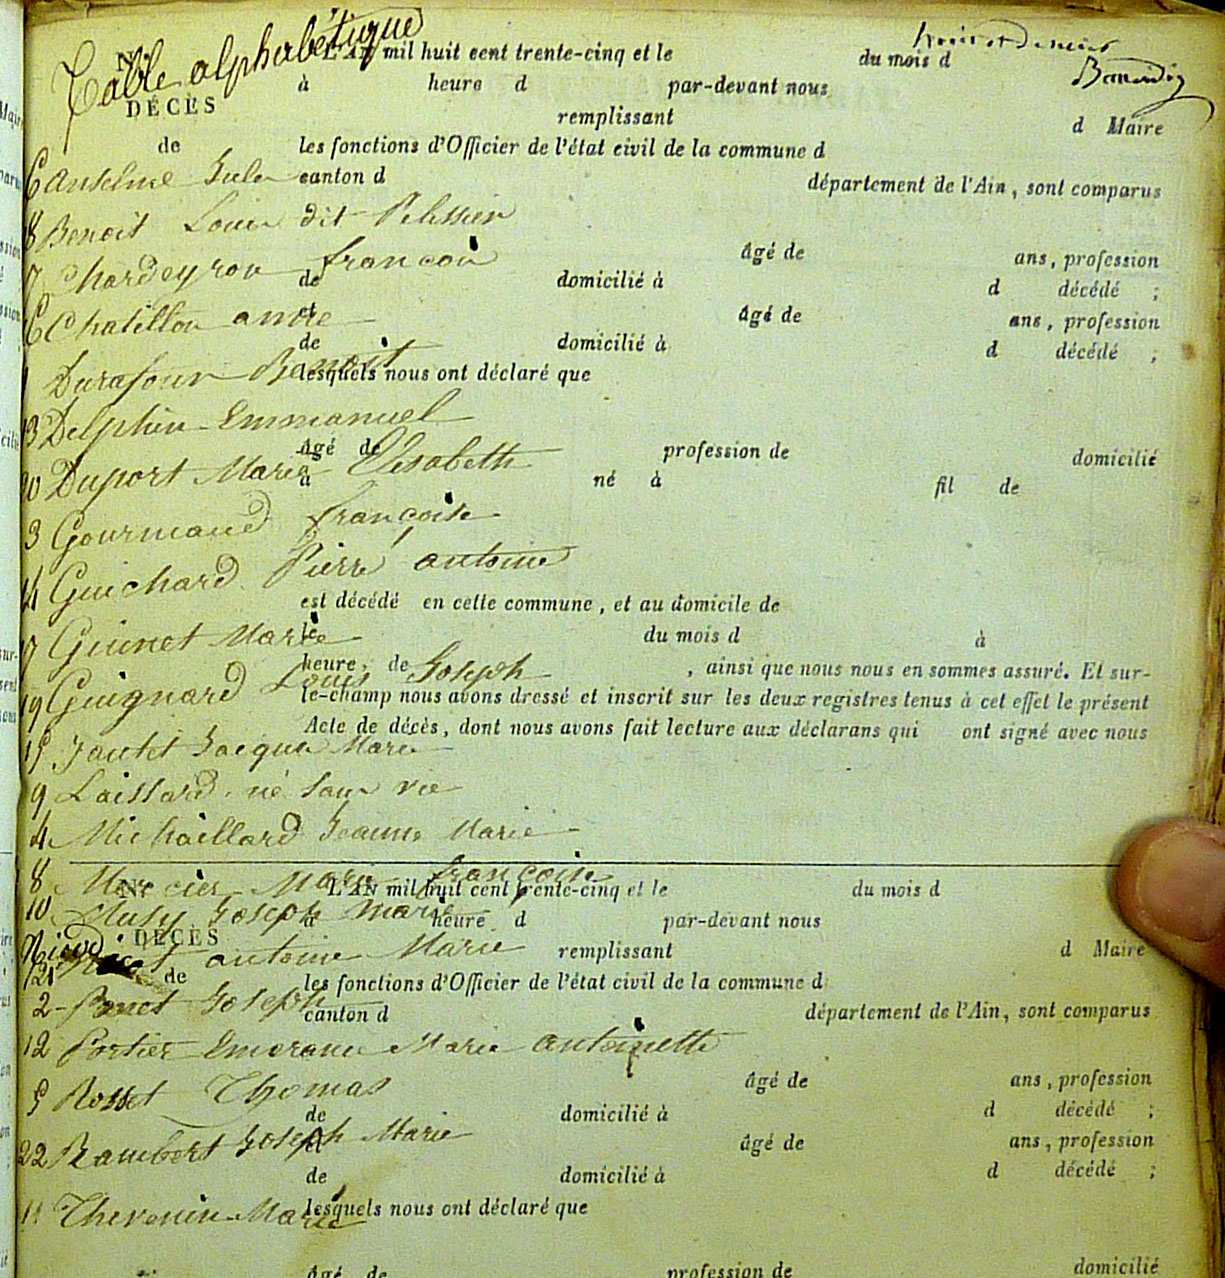 Table alphabétique
L'AN mil huit cent trente-cinq et le du mois d
à heure d par-devant nous
DÉCÈS
remplissant d Maire
de les fonctions d'Officier de l'état civil de la commune d
6 Anselme
canton d département de l'Ain, sont comparus
18 Benoit Louis dit Pelissier
âgé de ans, profession
7 Chardeyron françois
de domicilié à d décédé ;
16 Chatillon andré
et âgé de ans, profession
de domicilié à d décédé ;
1 Durafour Benoit
lesquels nous ont déclaré que
13 Delphin Emmanuel
âgé de profession de domicilié
20 Duport Marie Elisabeth
à né à fil de
3 Gourmand françoise
14 Guichard Pierre antoine
est décédé en cette commune, et au domicile de
17 Guinet Marie
le du mois d à
heure, de , ainsi que nous nous en sommes assuré. Et sur-
19 Guignard Louis Joseph
le-champ nous avons dressé et inscrit sur les deux registres tenus à cet effet le présent
Acte de décès, dont nous avons fait lecture aux déclarans qui ont signé avec nous
15 Jantet Jacques Marie
9 Laissard né sans vie
4 Michaillard Jeanne Marie
8 Mercier Marie françoise
N. L'AN mil huit cent trente-cinq et le du mois d
10 Musy Joseph Marie
à heure d par-devant nous
DÉCÈS
21 antoine Marie
remplissant d Maire
de les fonctions d'Officier de l'état civil de la commune d
2 Joseph
canton d département de l'Ain, sont comparus
12 Portier Emerane Marie antoinette
âgé de ans, profession
5 Rosset Thomas
de domicilié à d décédé ;
22 Rambert Joseph Marie
et âgé de ans, profession
de domicilié à d décédé ;
11 Thevenin Marie
lesquels nous ont déclaré que
âgé de profession de domicilié